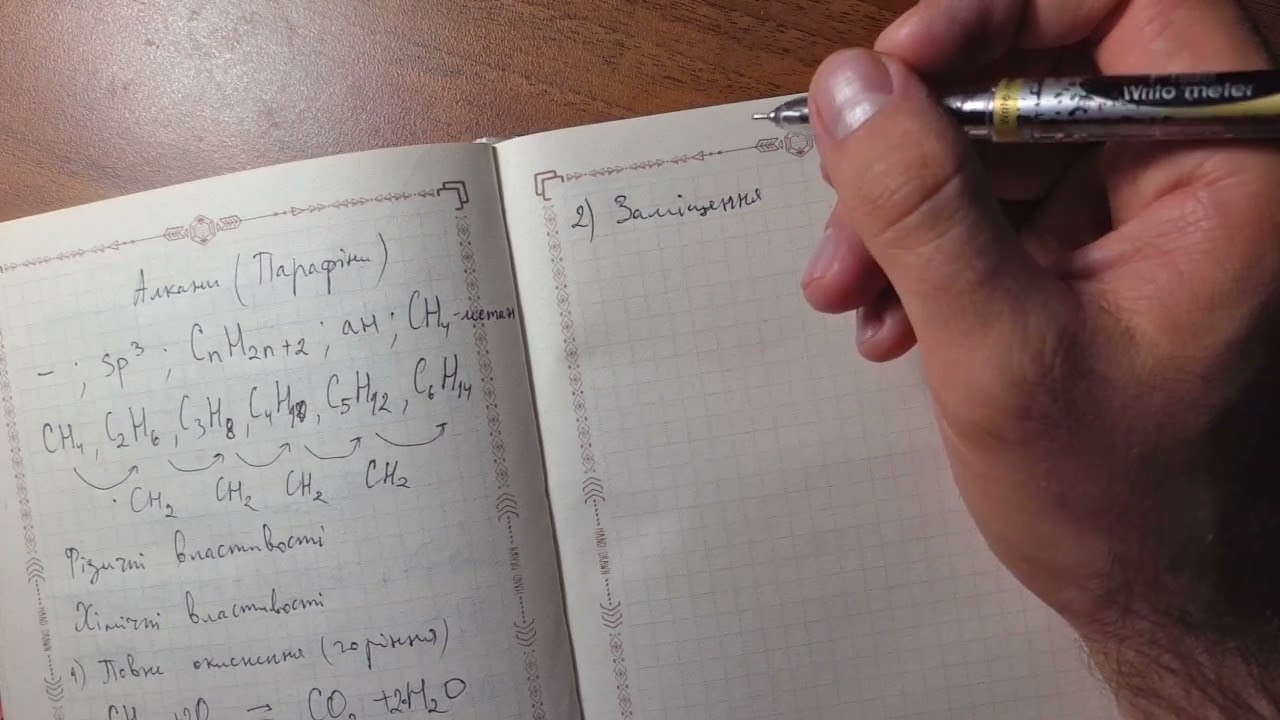 Алкани (Парафіни)
– ; sp³ ; CnH2n+2 ; ан ; CH4 – метан
CH4, C2H6, C3H8, C4H10, C5H12, C6H14
CH2 CH2 CH2 CH2
Фізичні властивості
Хімічні властивості
1) Повне окиснення (горіння)
CO2 + 2H2O
2) Заміщення
Writo meter
HAND DRAWN
HAND DRAWN
HAND DRAWN